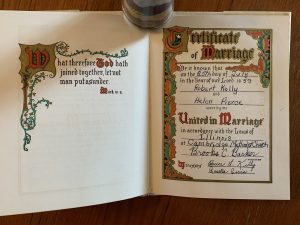 What therefore God hath
joined together, let not
man put asunder.
Mark 10:9.
Certificate
of Marriage
Be it known that
on the day of July
in the year of our Lord 19 59
Robert Kelly
and
Helen Pierce
were by me
United in Marriage
in accordance with the Laws of
Illinois
at Cambridge Methodist Church
Brooks
Witnesses